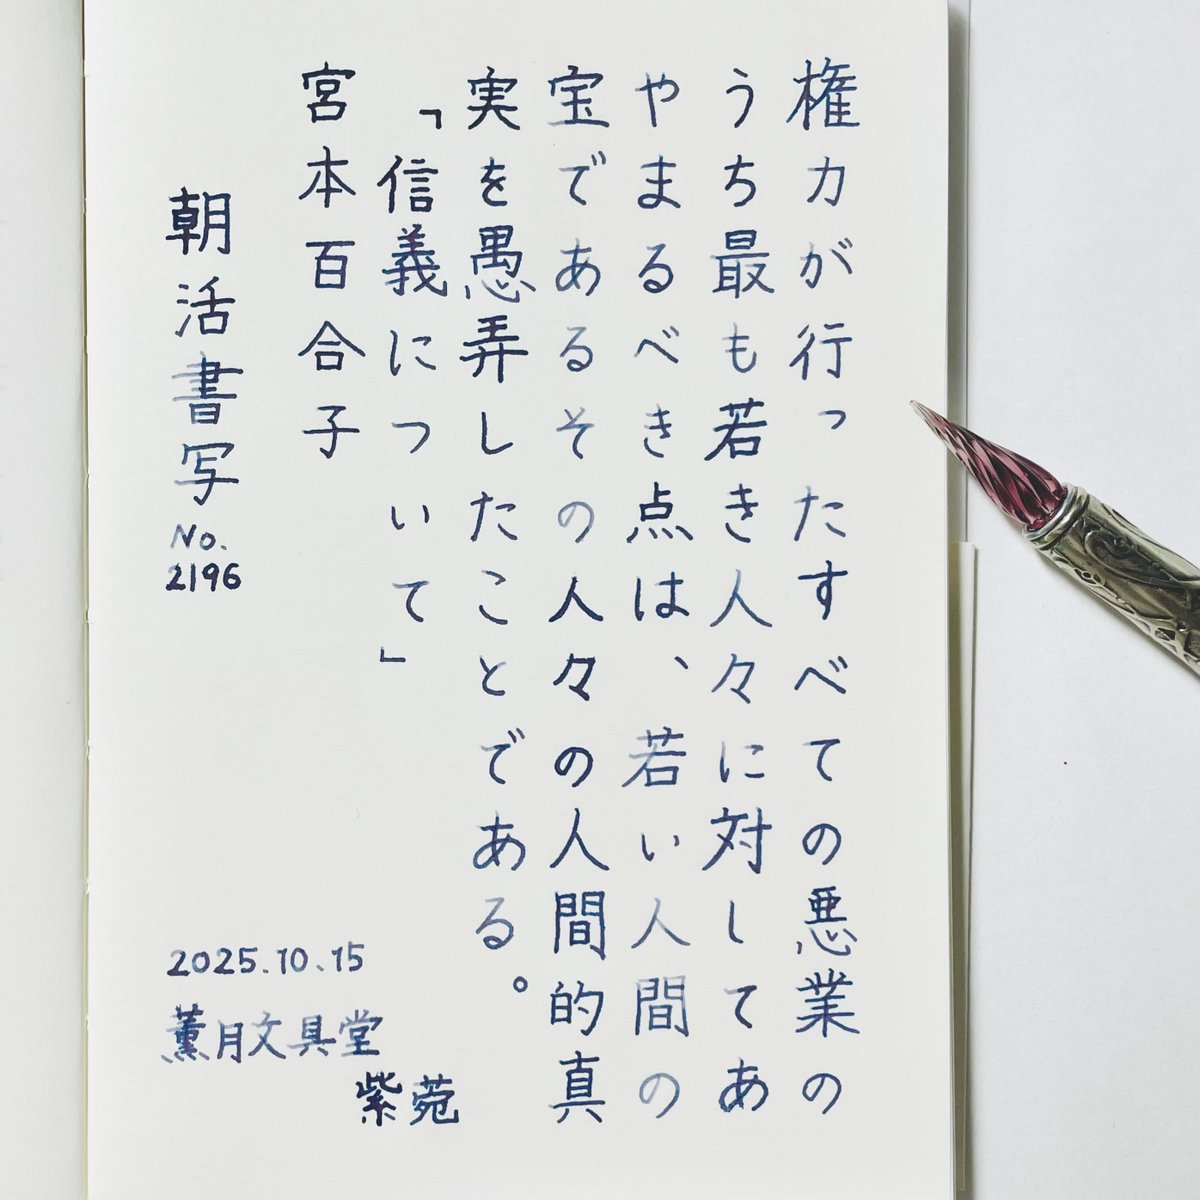 権力が行ったすべての悪業の
うち最も若き人々に対してあ
やまるべき点は、若い人間の
宝であるその人々の人間的真
実を愚弄したことである。
「信義について」
宮本百合子
朝活書写
No.
2196
2025.10.15
薫月文具堂
紫菀